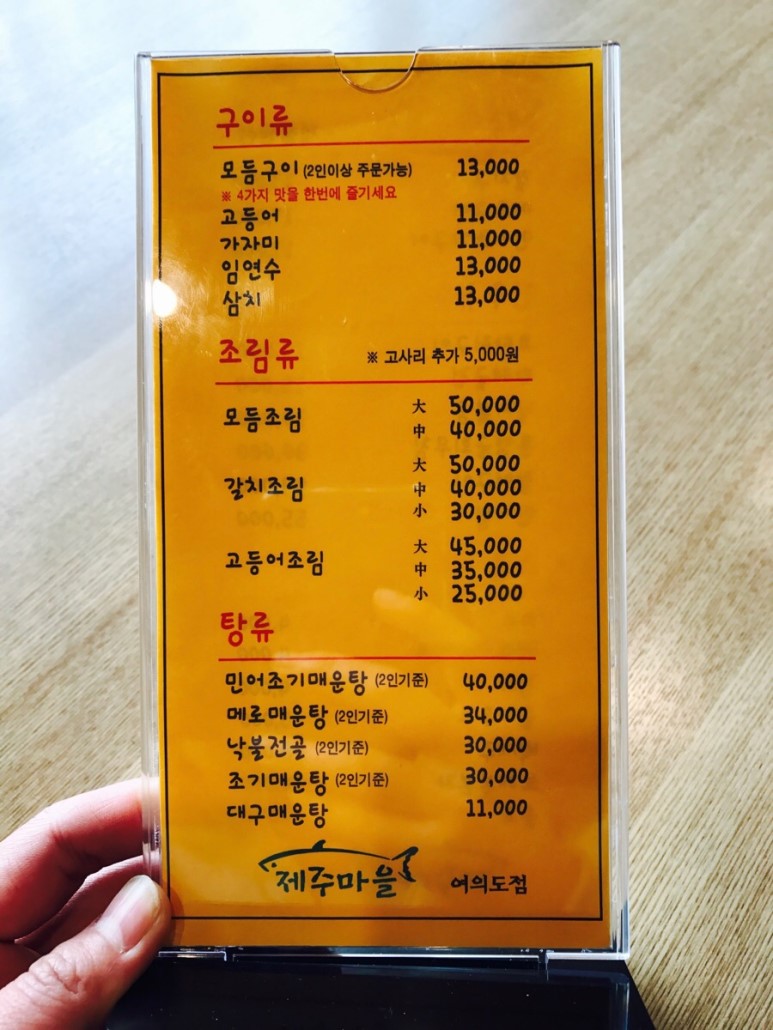 구이류
모듬구이 (2인이상 주문가능) 13,000
※ 4가지 맛을 한번에 즐기세요
고등어 11,000
가자미 11,000
임연수 13,000
삼치 13,000
조림류 ※ 고사리 추가 5,000원
모듬조림 大 50,000
中 40,000
갈치조림 大 50,000
中 40,000
小 30,000
고등어조림 大 45,000
中 35,000
小 25,000
탕류
민어조기매운탕 (2인기준) 40,000
메로매운탕 (2인기준) 34,000
낙불전골 (2인기준) 30,000
조기매운탕 (2인기준) 30,000
대구매운탕 11,000
제주마을 여의도점